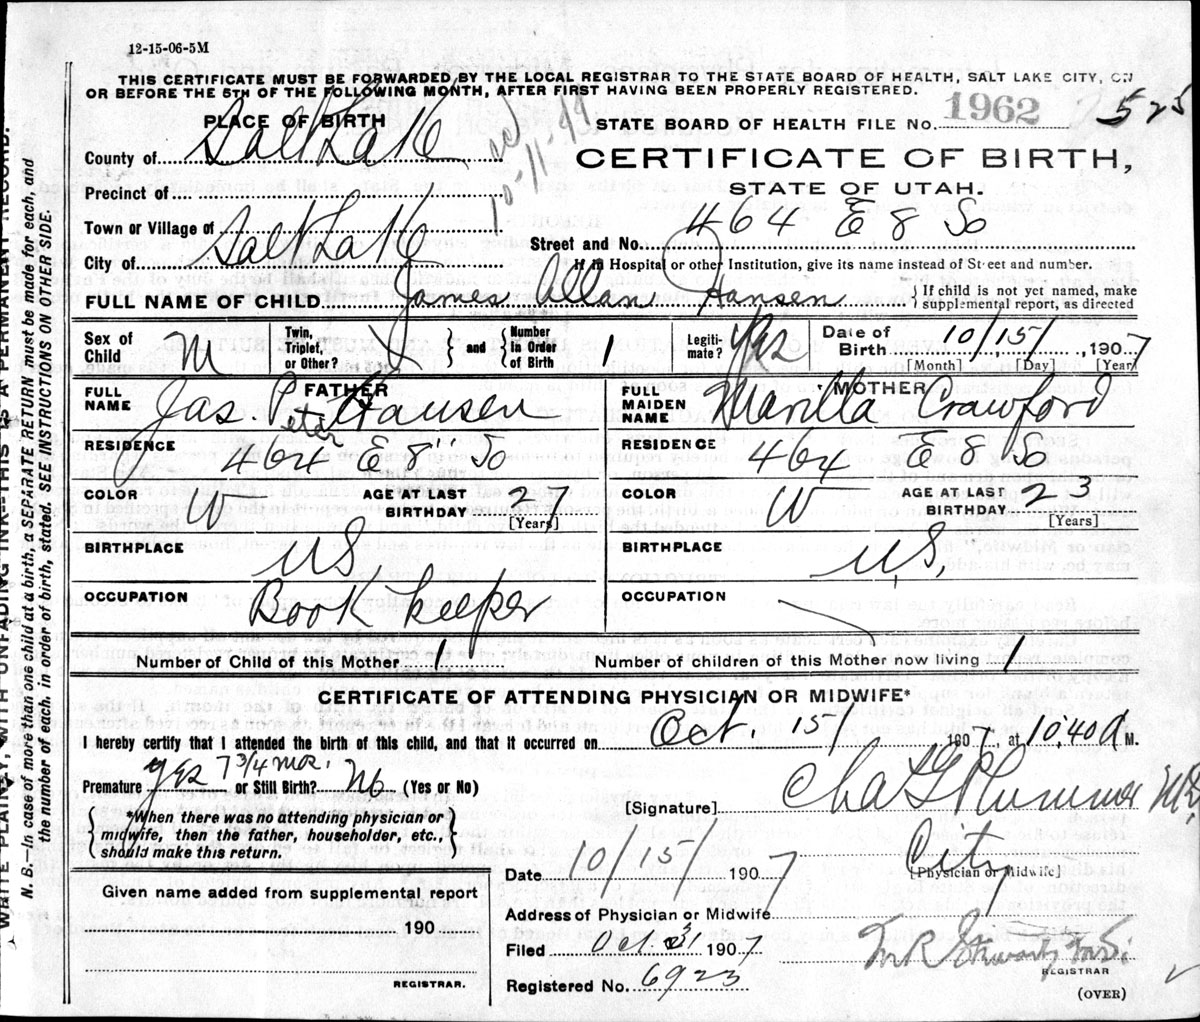 12-15-06-5M
THIS CERTIFICATE MUST BE FORWARDED BY THE LOCAL REGISTRAR TO THE STATE BOARD OF HEALTH, SALT LAKE CITY, ON
OR BEFORE THE 5TH OF THE FOLLOWING MONTH, AFTER FIRST HAVING BEEN PROPERLY REGISTERED.
PLACE OF BIRTH
STATE BOARD OF HEALTH FILE No. 1962 525
County of Salt Lake
CERTIFICATE OF BIRTH,
STATE OF UTAH.
Precinct of
10-11-44
Town or Village of
Street and No. 464 E 8 So
City of Salt Lake
If in Hospital or other Institution, give its name instead of Street and number.
FULL NAME OF CHILD James Allan Hansen { If child is not yet named, make
supplemental report, as directed
Sex of Child M
Twin, Triplet, or Other? } and { Number In Order of Birth 1
Legitimate? Yes
Date of Birth 10/15/, 1907
[Month] [Day] [Year]
FATHER
FULL NAME Jas P Hansen
Peter
MOTHER
FULL MAIDEN NAME Marilla Crawford
RESIDENCE 464 E 8" So
RESIDENCE 464 E 8 So
COLOR W AGE AT LAST BIRTHDAY 27 [Years]
COLOR W AGE AT LAST BIRTHDAY 23 [Years]
BIRTHPLACE US
BIRTHPLACE U.S.
OCCUPATION Book keeper
OCCUPATION
Number of Child of this Mother 1
Number of children of this Mother now living 1
CERTIFICATE OF ATTENDING PHYSICIAN OR MIDWIFE*
I hereby certify that I attended the birth of this child, and that it occurred on Oct. 15/ 1907, at 10:40 A M.
Premature yes 7 3/4 mos. or Still Birth? No (Yes or No)
[Signature] Chas G Plummer M.D.
{ *When there was no attending physician or
midwife, then the father, householder, etc.,
should make this return. }
[Physician or Midwife]
Date 10/15/ 1907
City
Given names added from supplemental report
190
Address of Physician or Midwife
Filed Oct. 31 1907
REGISTRAR
REGISTRAR.
Registered No. 6923
(OVER)
WRITE PLAINLY, WITH UNFADING INK—THIS IS A PERMANENT RECORD.
N. B.—In case of more than one child at a birth, a SEPARATE RETURN must be made for each, and
the number of each, in order of birth, stated. SEE INSTRUCTIONS ON OTHER SIDE.